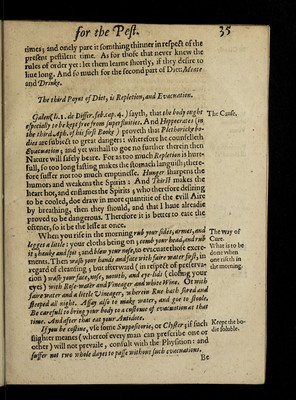 for the Pest. 35
times; and onely part it somthing thinner in respect of the
present pestilent time. As for those that never knew the
rules of order yet: let them learne shortly, if they desire to
live long. And so much for the second part of Diet: Meate
and Drinke.
The third Poynt of Diet, is Repletion, and Evacuation.
Galen (li. 1. de Differ. feb. cap. 4.) sayth, that the body ought
especially to be kept free from superfluities. And Hippocrates (in
the third Aph. of his first Booke) proveth that Plethoricke bo-
dies are subject to great dangers: wherefore he counselleth
Evacuation; and yet withall to goe no further therein then
Nature will safely beare. For as too much Repletion is hurt-
full, so too long fasting makes the stomach languish; there-
fore suffer not too much emptinesse. Hunger sharpens the
humors and weakens the Spirits: And Thirst makes the
heart hot, and enflames the Spirits; who therefore desiring
to be cooled, doe draw in more quantitie of the evill Aire
by breathing, then they should, and that I have alreadie
proved to be dangerous. Therefore it is better to eate the
oftener, so it be the lesse at once.
The Cause.
When you rise in the morning rub your sides, armes, and
legges a little: your cloths being on; comb your head, and rub
it; hauke and spit; and blow your nose, to evacuate those excre-
ments. Then wash your hands and face with faire water first, in
regard of cleansing; but afterward (in respect of preserva-
tion) wash your face, nose, mouth, and eye-lids (closing your
eyes) with Rose-water and Vineager and white Wine. Or with
faire water and a little Vineager, wherein Rue hath stood and
steeped all night. Assay also to make water, and goe to stoole.
Be carefull to bring your body to a custome of evacuation at that
time. And after that eat your Antidote.
The Way of
Cure.
What is to be
done when
one riseth in
the morning.
If you be costive, use some Suppositorie, or Clyster; if such
slighter meanes (whereof every man can prescribe one or
other) will not prevaile, consult with the Physition: and
suffer not two whole dayes to passe without such evacuations.
Keepe the bo-
die soluble.
Be